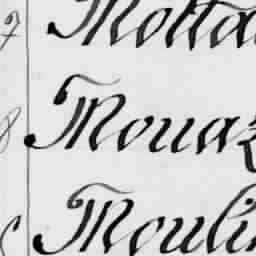 7 Motta
8 Mouaz
Moulin